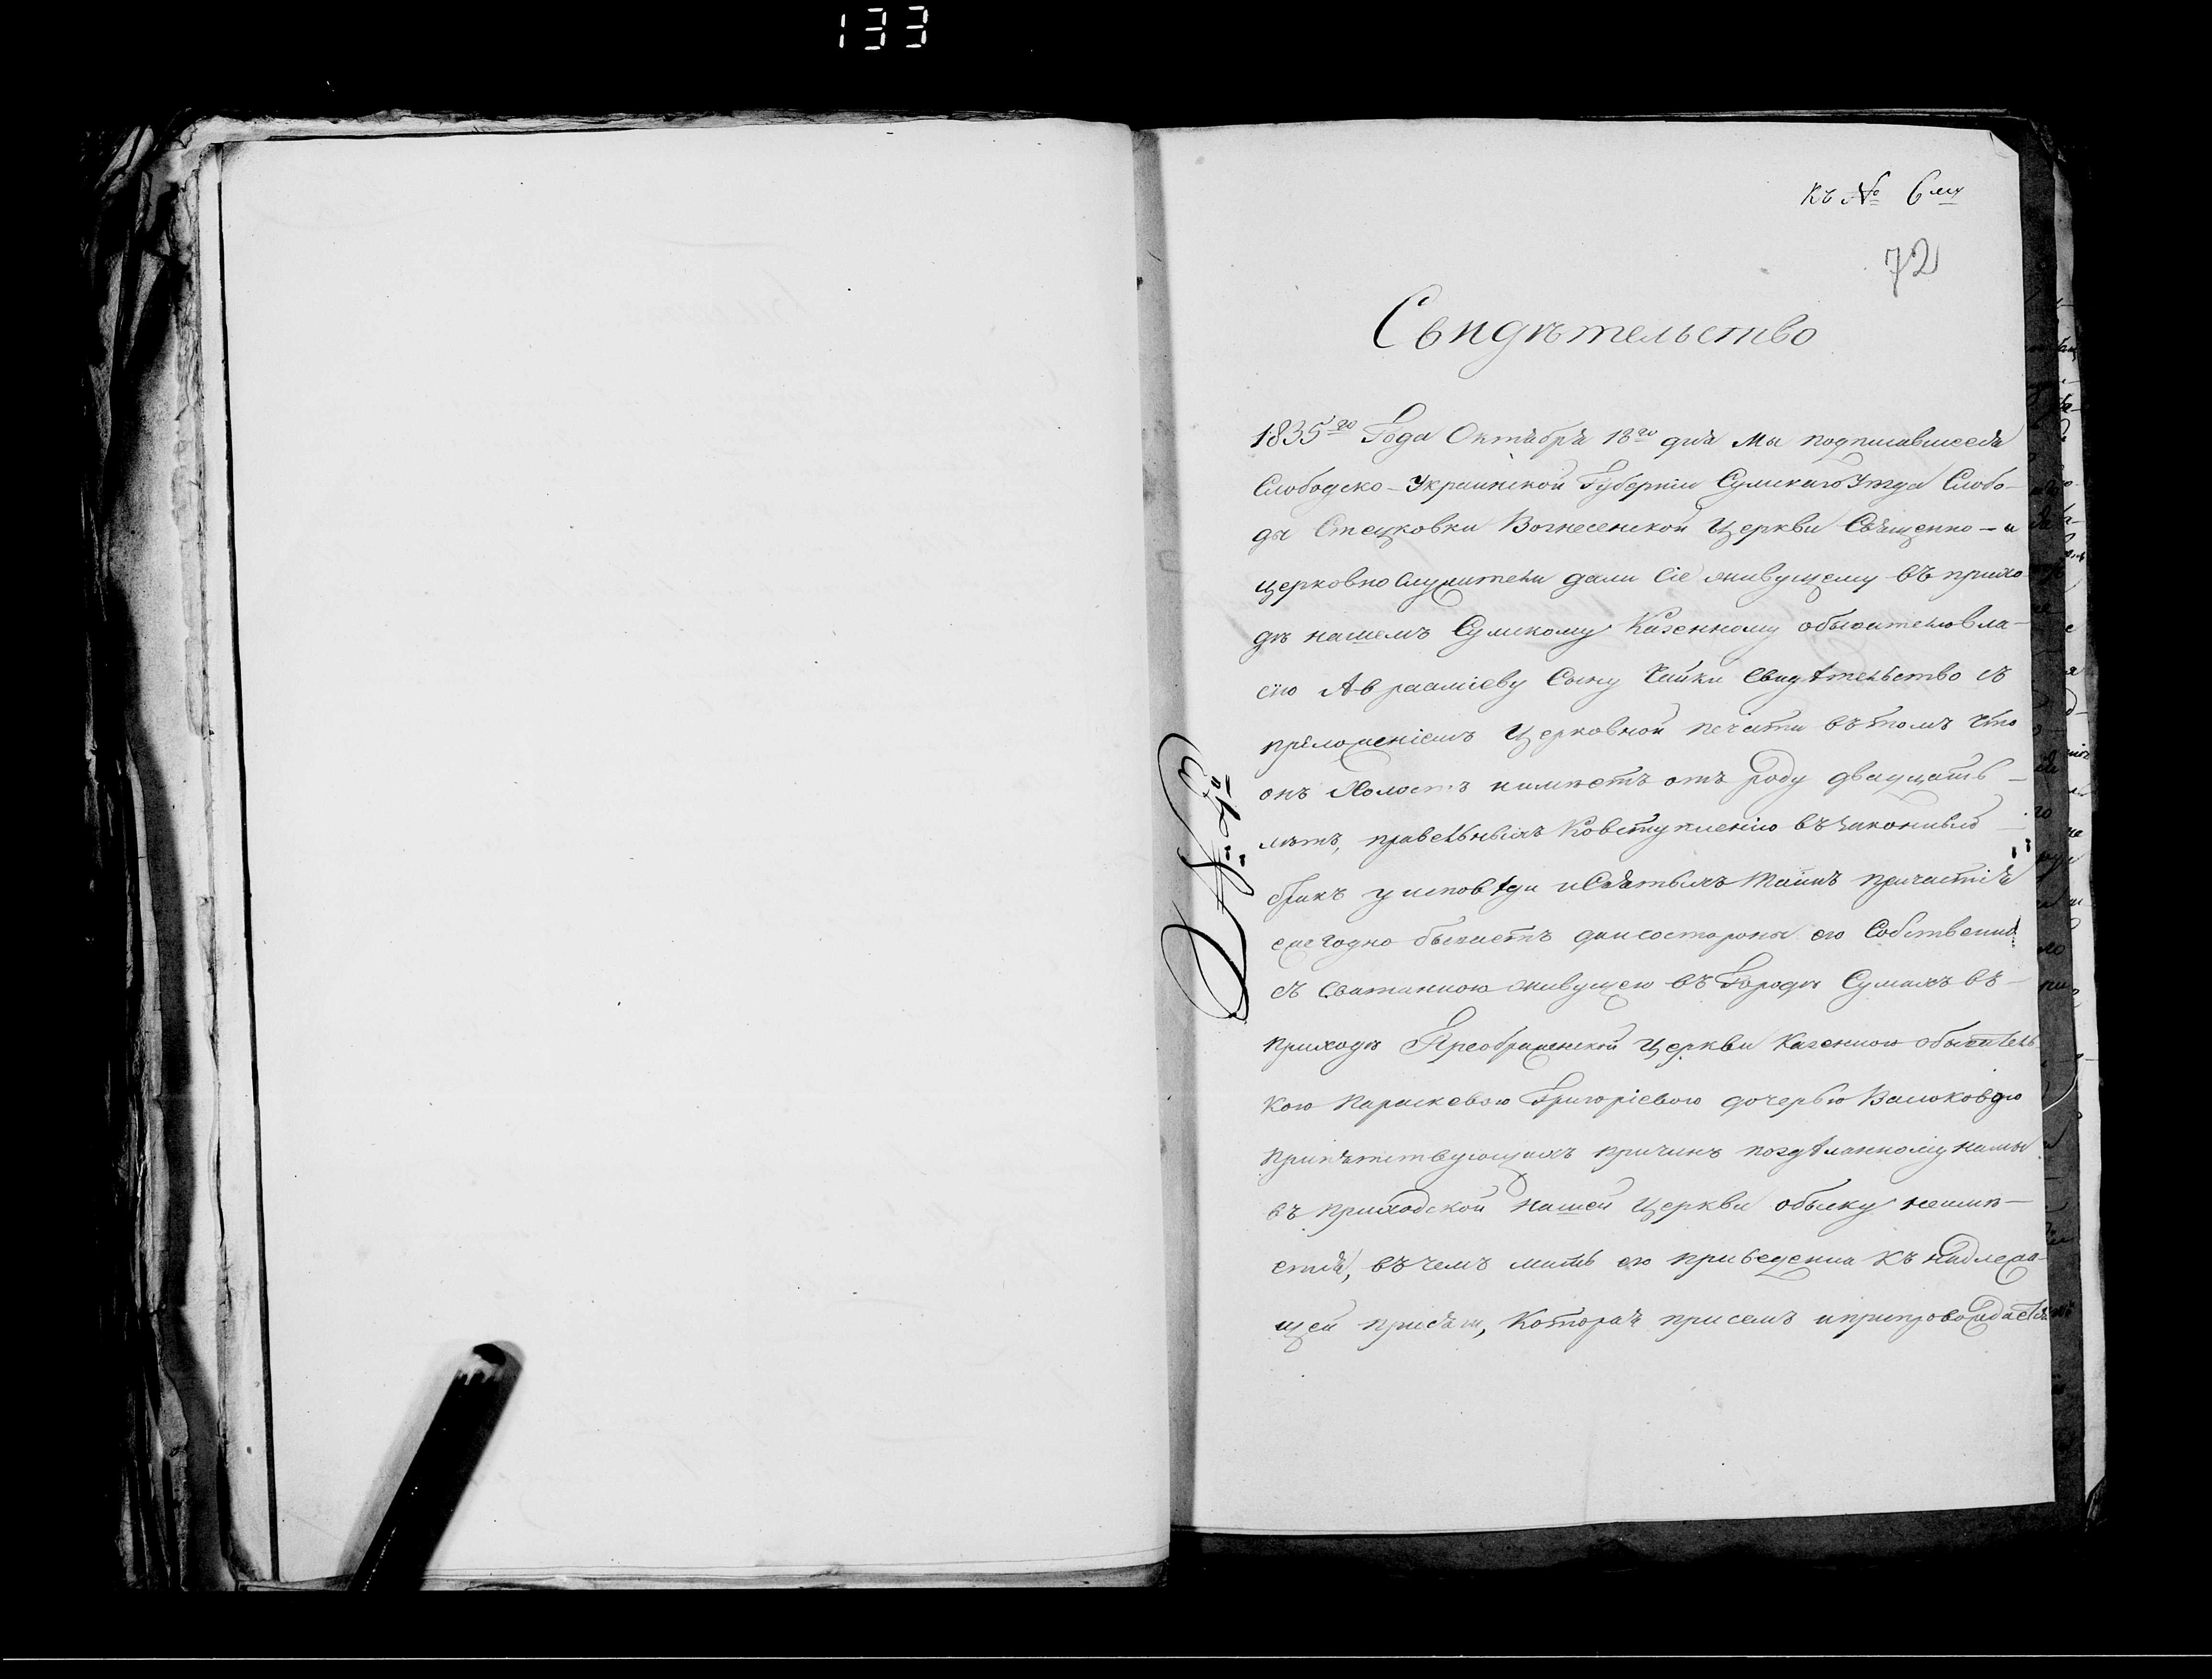 133
Къ № 6му
72
Свидѣтельство
1835го Года Октября 18го дня Мы подписавшееся
Слободско-Украинской Губерніи Сумскаго Уѣзда Слобо-
ды Стецковки Вознесенской Церкви Священно - и
церковнослужители дали сіе живущему въ прихо
дѣ нашемъ Сумскому Казенному обывателю Вла-
сію Авраамiеву Сыну Чайки Свидѣтельство съ
приложеніемъ Церковной печати въ томъ что
онъ Холостъ имѣетъ отъ роду двадцать
лѣтъ, правельныхъ Ковступленію въ законный
бракъ у исповѣди и Святыхъ таинъ причастія
ежегодно бываетъ и состороны его Собственно
съ сватанною живущею въ Городѣ Сумахъ въ
приходѣ Преображенской Церкви Казенною обыватель
кою Параскевою Григоріевою дочерью
припятствующихъ причинъ поздѣланному нами
въ приходской нашей Церкви обыску неимѣ-
ется, въ чемъ мать его приведенна къ надлежа-
щей присяги, Которая присемъ ипрепровождается